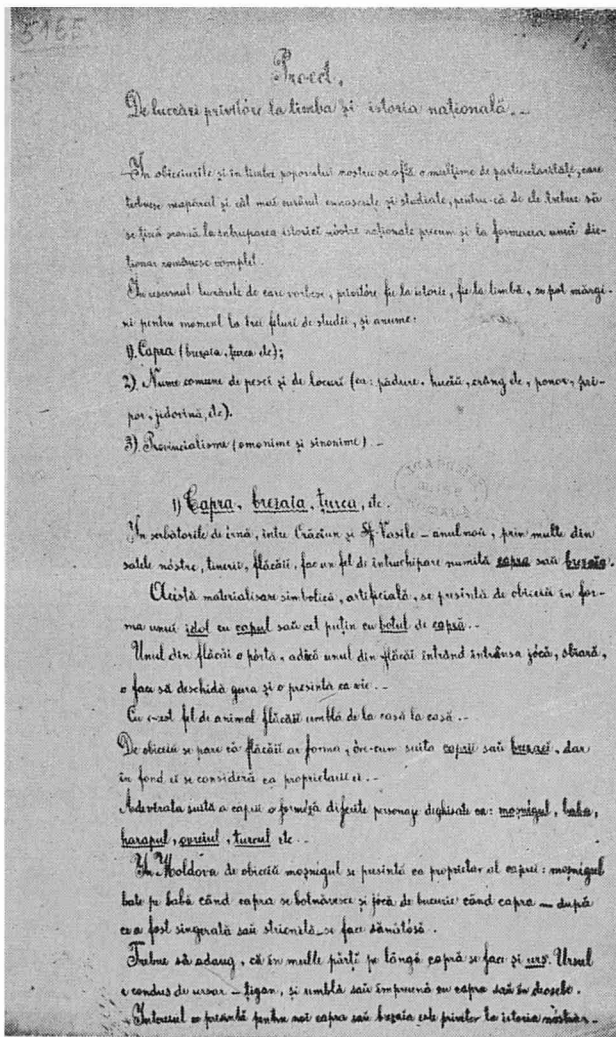 516E
Proect.
De lucrări privitóre la limba și istoria națională. –
În obiceiurile și în limba poporului nostru se află o mulțime de particularități, care
trebuesc neapărat și cât mai curând cunoscute și studiate, pentru-că de ele trebue să
se țină seamă la întruparea istoriei nóstre naționale precum și la formarea unui dic-
ționar românesc complet.
În resumat lucrările de care vorbesc, privitóre fie la istorie, fie la limbă, se pot mărgi-
ni pentru moment la trei feluri de studii, și anume:
1). Capra (brezaia, țurca etc);
2). Nume comune de pesci și de locuri (ca: pădure, huciŭ, crâng etc, ponor, pri-
por, jidovină, etc).
3) Provincialisme (omonime și sinonime). –
1) Capra, brezaia, țurca, etc.
În serbătorile de érnă, între Crăciun și Sf. Vasile – anul noŭ, prin multe din
satele nóstre, tinerii, flăcăii, fac un fel de întruchipare numită capra saŭ brezaia.
Acéstă materialisare simbolică, artificială, se presintă de obiceiŭ în for-
ma unui idol cu capul saŭ cel puțin cu botul de capră. –
Unul din flăcăi o pórtă, adică unul din flăcăi intrând întrânsa jócă, sbiară,
o face să deschidă gura și o presintă ca vie. –
Cu acest fel de animal flăcăii umblă de la casă la casă. –
De obiceiŭ se pare că flăcăii ar forma, óre-cum suita caprii saŭ brezaei, dar
în fond ei se consideră ca proprietarii ei. –
Adevărata suită a caprii o forméză diferite personaje deghisate ca: moșnégul, baba,
harapul, ovreiul, turcul etc. –
În Moldova de obiceiŭ moșnégul se presintă ca proprietar al caprei: moșnégul
bate pe babă când capra se bolnăvesce și jócă de bucurie când capra – după
ce a fost singerată saŭ stricnită – se face sănătósă.
Trebue să adaug, că în multe părți pe lângă capră se face și urs. Ursul
e condus de ursar – țigan, și umblă saŭ împreună cu capra saŭ în deosebi.
Interesul ce presintă pentru noi capra saŭ brezaia este privitor la istoria nóstră. –